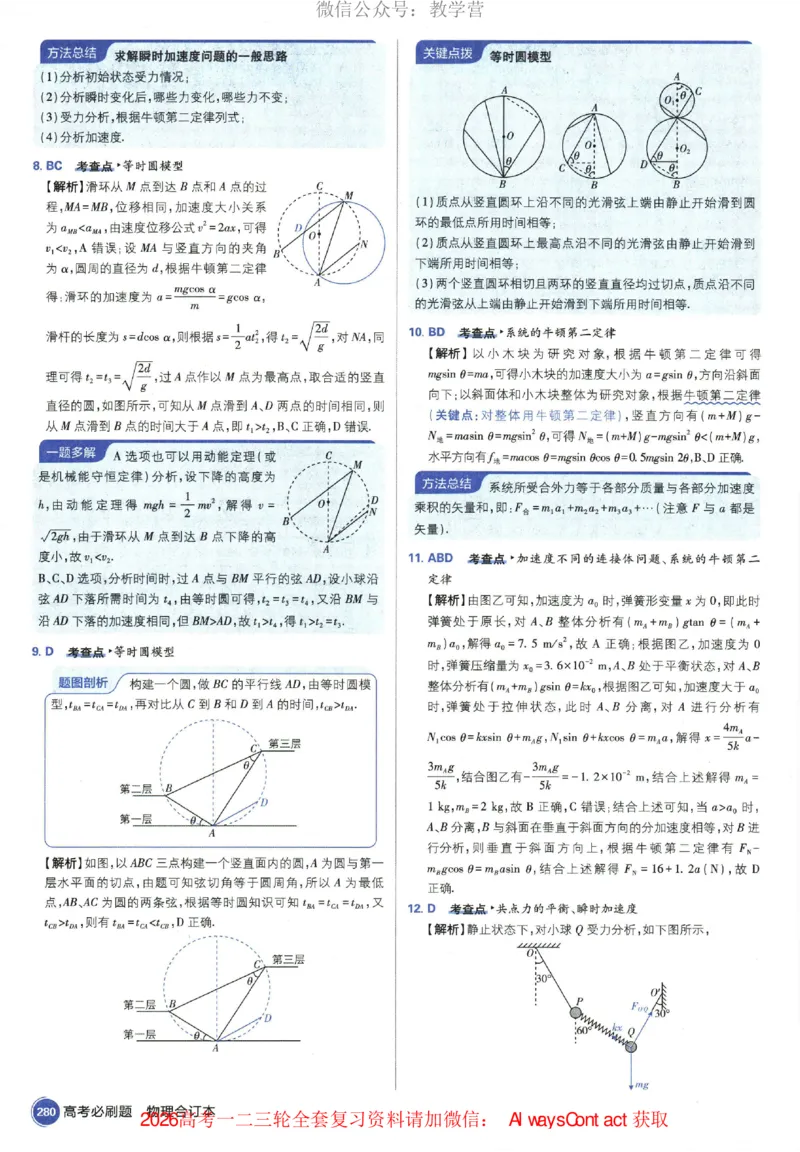 微信公众号：教学营
方法总结 求解瞬时加速度问题的一般思路
(1)分析初始状态受力情况；
(2)分析瞬时变化后,哪些力变化,哪些力不变；
(3)受力分析,根据牛顿第二定律列式；
(4)分析加速度.
8. BC 考查点▸等时圆模型
【解析】滑环从 M 点到达 B 点和 A 点的过
程,MA=MB,位移相同,加速度大小关系
为 a_MB<a_MA,由速度位移公式 v²=2ax,可得
v₁<v₂,A 错误；设 MA 与竖直方向的夹角
为 α,圆周的直径为 d,根据牛顿第二定律
得：滑环的加速度为 a=mgcos α/m=gcos α,
C
M
D
O
B
N
A
滑杆的长度为 s=dcos α,则根据 s=1/2at₂²,得 t₂=√(2d/g),对 NA,同
理可得 t₂=t₃=√(2d/g),过 A 点作以 M 点为最高点,取合适的竖直
直径的圆,如图所示,可知从 M 点滑到 A、D 两点的时间相同,则
从 M 点滑到 B 点的时间大于 A 点,即 t₁>t₂,B、C 正确,D 错误.
一题多解 A 选项也可以用动能定理(或
是机械能守恒定律)分析,设下降的高度为
h,由动能定理得 mgh=1/2mv²,解得 v=
√2gh,由于滑环从 M 点到达 B 点下降的高
度小,故 v₁<v₂.
C
M
O
D
N
B
A
B、C、D 选项,分析时间时,过 A 点与 BM 平行的弦 AD,设小球沿
弦 AD 下落所需时间为 t₄,由等时圆可得,t₂=t₃=t₄,又沿 BM 与
沿 AD 下落的加速度相同,但 BM>AD,故 t₁>t₄,得 t₁>t₂=t₃.
9. D 考查点▸等时圆模型
题图剖析 构建一个圆,做 BC 的平行线 AD,由等时圆模
型,t_BA=t_CA=t_DA,再对比从 C 到 B 和 D 到 A 的时间,t_CB>t_DA.
C 第三层
θ
第二层 B
D
第一层 θ
A
【解析】如图,以 ABC 三点构建一个竖直面内的圆,A 为圆与第一
层水平面的切点,由题可知弦切角等于圆周角,所以 A 为最低
点,AB、AC 为圆的两条弦,根据等时圆知识可知 t_BA=t_CA=t_DA,又
t_CB>t_DA,则有 t_BA=t_CA<t_CB,D 正确.
C 第三层
θ
第二层 B
D
第一层 θ
A
关键点拨 等时圆模型
A
O
θ
B
A
O
θ
C
θ
B
A
θ
C
O₁
O₂
D
θ
θ
B
(1)质点从竖直圆环上沿不同的光滑弦上端由静止开始滑到圆
环的最低点所用时间相等；
(2)质点从竖直圆环上最高点沿不同的光滑弦由静止开始滑到
下端所用时间相等；
(3)两个竖直圆环相切且两环的竖直直径均过切点,质点沿不同
的光滑弦从上端由静止开始滑到下端所用时间相等.
10. BD 考查点▸系统的牛顿第二定律
【解析】以小木块为研究对象,根据牛顿第二定律可得
mgsin θ=ma,可得小木块的加速度大小为 a=gsin θ,方向沿斜面
向下；以斜面体和小木块整体为研究对象,根据牛顿第二定律
(关键点：对整体用牛顿第二定律),竖直方向有(m+M)g-
N地=masin θ=mgsin² θ,可得 N地=(m+M)g-mgsin² θ<(m+M)g,
水平方向有f地=macos θ=mgsin θcos θ=0.5mgsin 2θ,B、D 正确.
方法总结 系统所受合外力等于各部分质量与各部分加速度
乘积的矢量和,即：F合=m₁a₁+m₂a₂+m₃a₃+…(注意 F 与 a 都是
矢量).
11. ABD 考查点▸加速度不同的连接体问题、系统的牛顿第二
定律
【解析】由图乙可知,加速度为 a₀ 时,弹簧形变量 x 为 0,即此时
弹簧处于原长,对 A、B 整体分析有(m_A+m_B)gtan θ=(m_A+
m_B)a₀,解得 a₀=7.5 m/s²,故 A 正确；根据图乙,加速度为 0
时,弹簧压缩量为 x₀=3.6×10⁻² m,A、B 处于平衡状态,对 A、B
整体分析有(m_A+m_B)gsin θ=kx₀,根据图乙可知,加速度大于 a₀
时,弹簧处于拉伸状态,此时 A、B 分离,对 A 进行分析有
N₁cos θ=kxsin θ+m_Ag,N₁sin θ+kxcos θ=m_Aa,解得 x=4m_A/5k a-
3m_Ag/5k,结合图乙有-3m_Ag/5k=-1.2×10⁻² m,结合上述解得 m_A=
1 kg,m_B=2 kg,故 B 正确,C 错误；结合上述可知,当 a>a₀ 时,
A、B 分离,B 与斜面在垂直于斜面方向的分加速度相等,对 B 进
行分析,则垂直于斜面方向上,根据牛顿第二定律有 F_N-
m_Bgcos θ=m_Basin θ,结合上述解得 F_N=16+1.2a(N),故 D
正确.
12. D 考查点▸共点力的平衡、瞬时加速度
【解析】静止状态下,对小球 Q 受力分析,如下图所示,
O
30°
P
O'
F_O'Q
30°
60°
kx
Q
mg
280 高考必刷题 物理合订本
2026高考一二三轮全套复习资料请加微信： AlwaysContact 获取